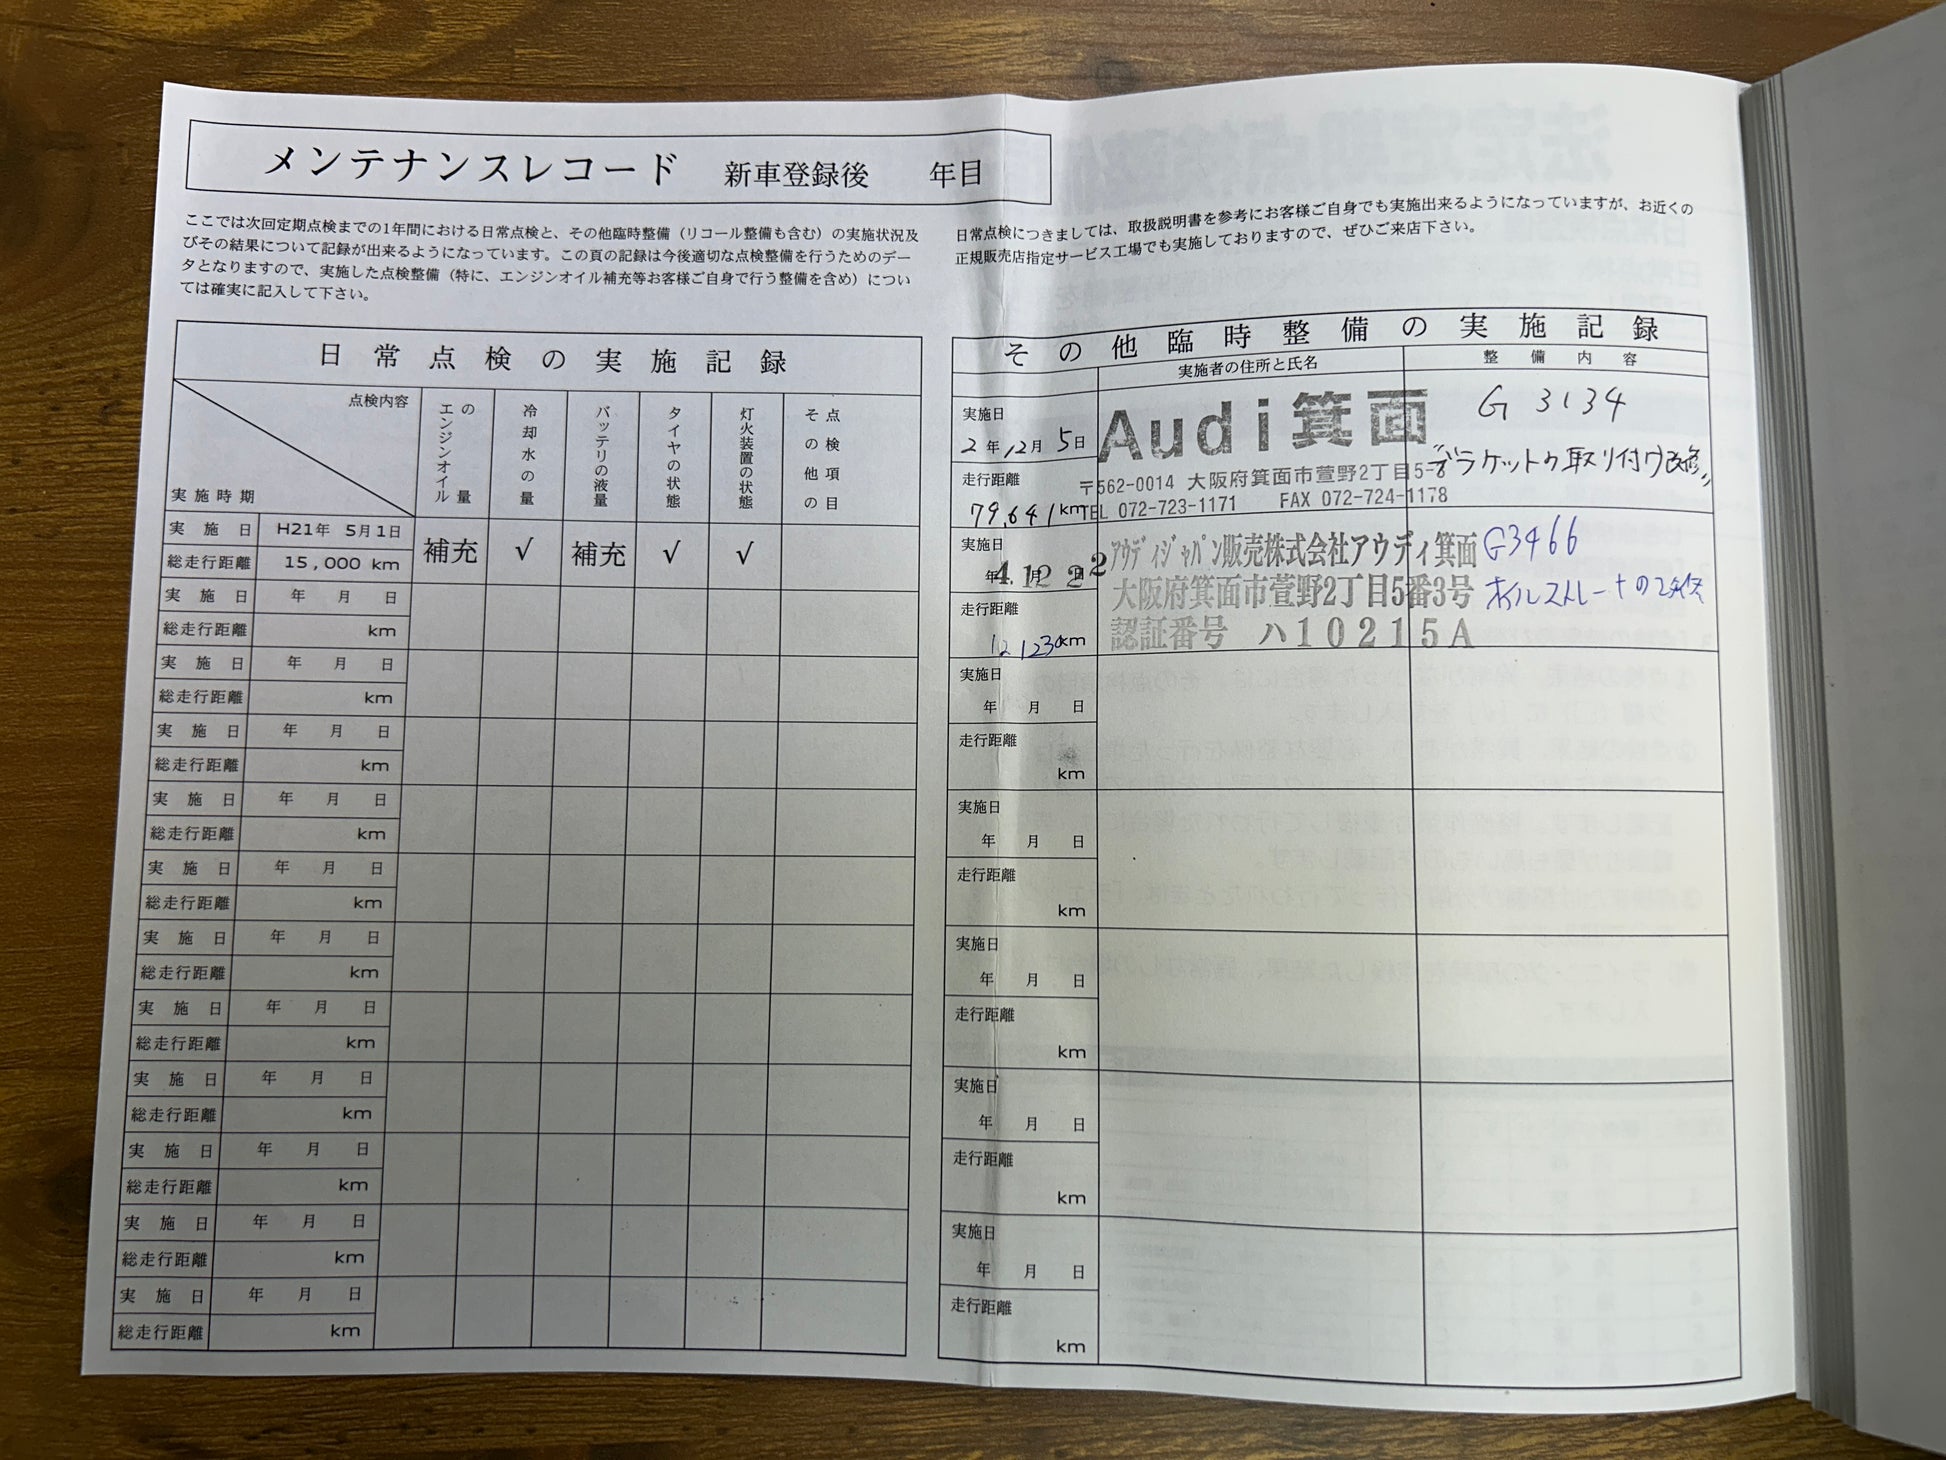 メンテナンスレコード 新車登録後 年目
ここでは次回定期点検までの1年間における日常点検と、その他臨時整備（リコール整備も含む）の実施状況及
びその結果について記録が出来るようになっています。この頁の記録は今後適切な点検整備を行うためのデー
タとなりますので、実施した点検整備（特に、エンジンオイル補充等お客様ご自身で行う整備を含め）につい
ては確実に記入して下さい。
日常点検につきましては、取扱説明書を参考にお客様ご自身でも実施出来るようになっていますが、お近くの
正規販売店指定サービス工場でも実施しておりますので、ぜひご来店下さい。
日常点検の実施記録
点検内容
実施時期
エンジンオイルの量
冷却水の量
バッテリの液量
タイヤの状態
灯火装置の状態
その他の点検項目
実施日 H21年 5月1日
総走行距離 15,000 km
補充 √ 補充 √ √
実施日 年 月 日
総走行距離 km
実施日 年 月 日
総走行距離 km
実施日 年 月 日
総走行距離 km
実施日 年 月 日
総走行距離 km
実施日 年 月 日
総走行距離 km
実施日 年 月 日
総走行距離 km
実施日 年 月 日
総走行距離 km
実施日 年 月 日
総走行距離 km
実施日 年 月 日
総走行距離 km
実施日 年 月 日
総走行距離 km
実施日 年 月 日
総走行距離 km
その他臨時整備の実施記録
実施者の住所と氏名 整備内容
実施日
2年12月5日
走行距離
79,641km
Audi箕面
〒562-0014 大阪府箕面市萱野2丁目5-
TEL 072-723-1171 FAX 072-724-1178
G3134
ブラケットの取り付け改修
実施日
4年12月22日
走行距離
km
アウディジャパン販売株式会社アウディ箕面
大阪府箕面市萱野2丁目5番3号
認証番号 ハ10215A
G3466
オイルストレーナの
実施日
年 月 日
走行距離
km
実施日
年 月 日
走行距離
km
実施日
年 月 日
走行距離
km
実施日
年 月 日
走行距離
km
実施日
年 月 日
走行距離
km